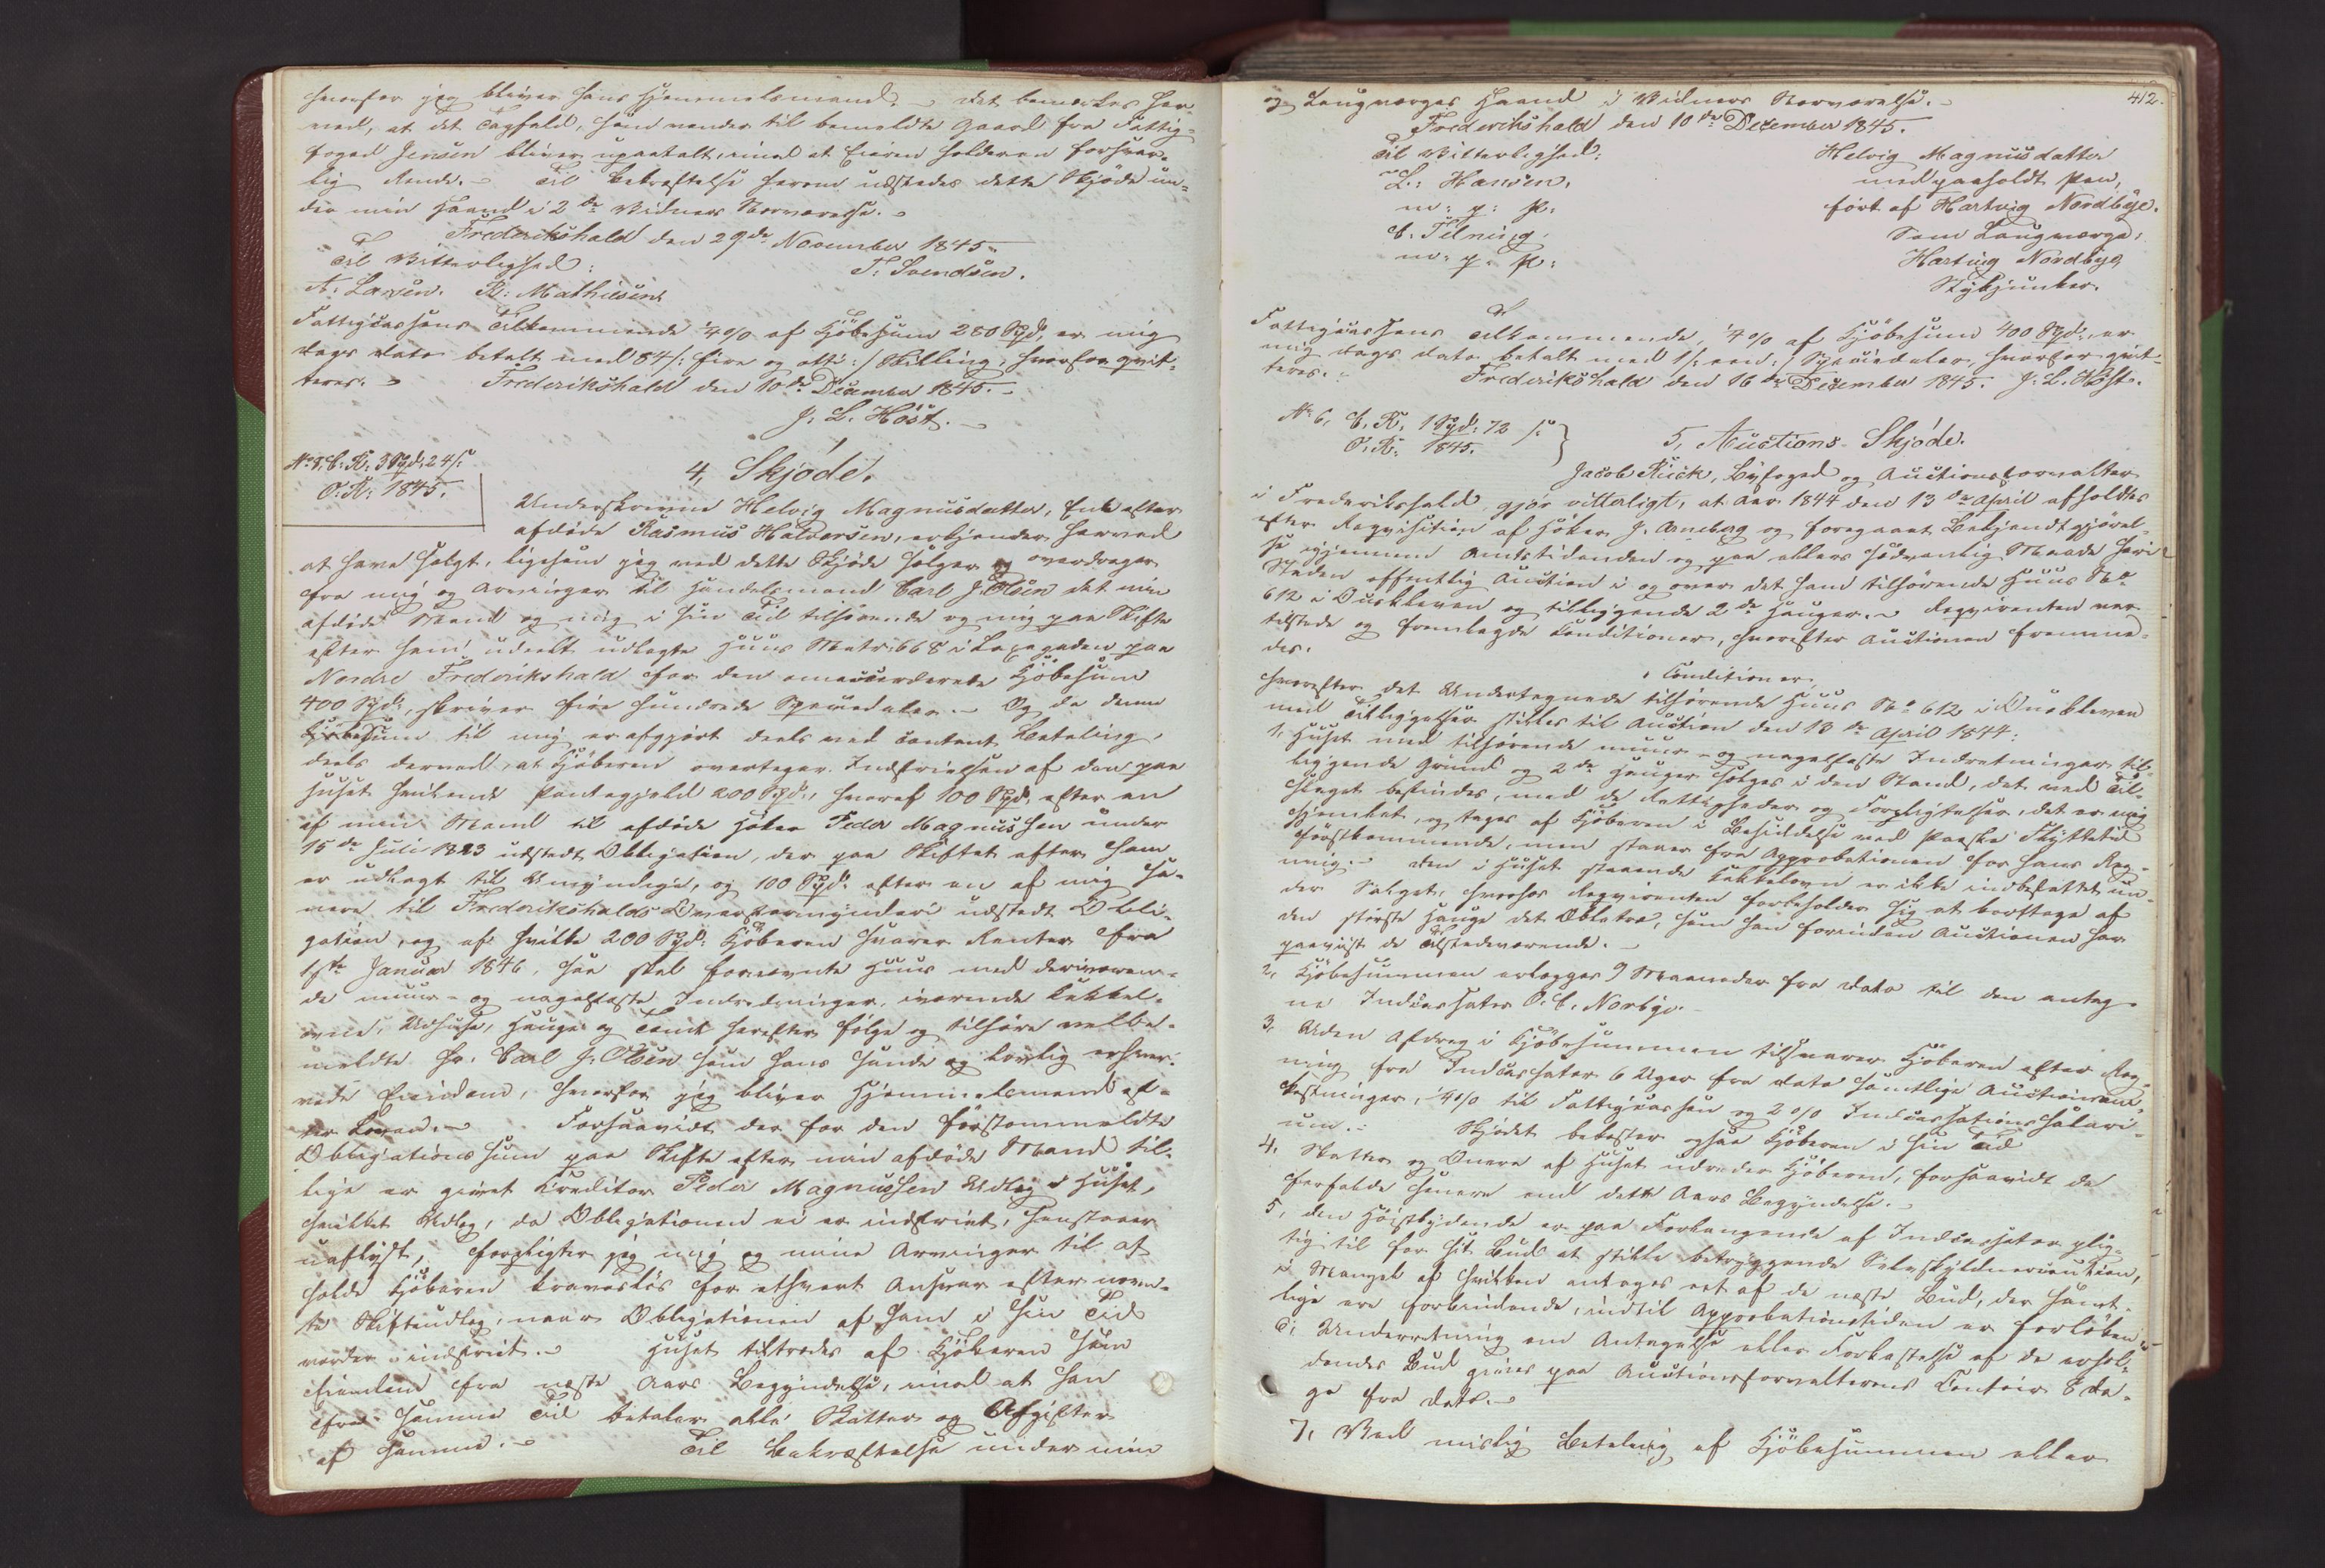 hvorfor jeg bliver hans Hjemmelsmand. – Det bemærkes her-
ved, at det Tagfald, som vender til bemeldte Gaard fra Fattig-
foged Jensen bliver upaatalt, imod at Eieren holder en forsvar-
lig Rende. – Til Bekræftelse herom udstedes dette Skjøde un-
der min Haand i 2de Vidners Nærværelse. –
Frederikshald den 29de November 1845.
Til Vitterlighed: T. Svendsen.
A. Larsen. R. Mathiesen
Fattigcassens Tilkommende ¼ % af Kjöbesum 280 Spd., er mig
Dags Dato betalt med 84 /: fire og otti :/ Skilling, hvorfor qvit-
teres. – Frederikshald den 10de December 1845. –
J. L. Höst. –
No 7. C. R. 3 Spd. 24 s.
O. R. 1845.
4, Skjöde.
Underskrevne Helvig Magnusdatter, Enke efter
afdöde Rasmus Halvorsen, erkjender herved
at have solgt, ligesom jeg ved dette Skjöde sælger og overdrager
fra mig og Arvinger til Handelsmand Carl J. Olsen det min
afdöde Mand og mig i sin Tid tilhörende og mig paa Skifte
efter ham udeelt udlagte Huus Matr: 668 i paa
Nordre Frederikshald for den omaccorderede Kjöbesum
400 Spd., skriver fire hundrede Speciedaler. – Og da denne
Kjöbesum til mig er afgjort deels ved contant Betaling,
deels derved, at Kjöberen overtager Indfrielsen af den paa
Huset heftende Pantegjeld 200 Spd., hvoraf 100 Spd. efter en
af min Mand til afdöde Höker Peder Magnussen under
15de Juli 1823 udstedt Obligation, der paa Skiftet efter ham
er udlagt til Umyndige, og 100 Spd. efter en af mig se-
nere til Frederikshalds Overformynderi udstedt Obli-
gation, og af hvilke 200 Spd: Kjöberen svarer Renter fra
1ste Januar 1846, saa skal fornævnte Huus med deriværen-
de muur- og nagelfaste Indredninger, iværende Kakkel-
ovne, Udhuse, Hauge og Tomt herefter fölge og tilhöre velbe-
meldte Hr. Carl J. Olsen som hans sande og lovlig erhver-
vede Eiendom, hvorfor jeg bliver Hjemmelsmand ef-
ter Loven. – Forsaavidt der for den förstommeldte
Obligations Sum paa Skifte efter min afdöde Mand til-
lige er givet Creditor Peder Magnussen Udlæg i Huset,
hvilket Udlæg, da Obligationen ei er indfriet, henstaaer
uaflyst, forpligter jeg mig og mine Arvinger til at
holde Kjöberen kraveslös for ethvert Ansvar efter nævn-
te Skifteudlæg, naar Obligationen af ham i sin Tid
vorder indfriet. – Huset tiltrædes af Kjöberen som
Eiendom fra næste Aars Begyndelse, imod at han
fra samme Tid betaler alle Skatter og Afgifter
af samme. – Til Bekræftelse under min
412.
og Laugværges Haand i Vidners Nærværelse. –
Frederikshald den 10de December 1845.
Til Vitterlighed: Helvig Magnusdatter
L. Hansen. med paaholdt Pen,
m: p: p: fört af Hartvig Nordbye.
C. Tilning. Som Laugværge:
m: p: p: Hartvig Nordbye
Stykjunker.
Fattigcassens Tilkommende, ¼ % af Kjöbesum 400 Spd., er
mig Dags Dato betalt med 1 /: een :/ Speciedaler, hvorfor qvit-
teres. – Frederikshald den 16de December 1845. J. L. Höst.
No 6, C. R. 1 Spd: 72 s.
O. R. 1845.
5, Auctions-Skjöde.
Jacob Rieck, Byfoged og Auctionsforvalter
i Frederikshald gjör vitterligt, at Aar 1844 den 13de April afholdtes
efter Reqvisition af Höker J. Arneberg og foregaaet Bekjendtgjörel-
se igjennem Amtstidenden og paa ellers sædvanlig Maade her i
Staden offentlig Auction i og over det ham tilhörende Huus No
612 i Buskleven og tilliggende 2de Hauger. – Reqvirenten var
tilstede og fremlagde Conditioner, hvorefter Auctionen fremme-
des.
Conditioner,
hvorefter det Undertegnede tilhörende Huus No 612 i Buskleven
med Tilliggelser stilles til Auction den 13de April 1844:
1, Huset med tilhörende muur- og nagelfaste Indretninger, til-
liggende Grund og 2de Hauger sælges i den Stand, det ved Til-
slaget befindes, med de Rettigheder og Forpligtelser, det er mig
hjemlet, og tages af Kjöberen i Besiddelse ved Paaske Flyttetid
förstkommende, men staaer fra Approbationen for hans Reg-
ning. – Den i Huset staaende Kakkelovn er ikke indbefattet un-
der Salget, hvorhos Reqvirenten forbeholder sig at borttage af
den störste Hauge det Æbletræ, som han forinden Auctionen har
paaviist de Tilstedeværende. –
2, Kjöbesummen erlægges 9 Maaneder fra Dato til den antag-
ne Incassator O. C. Norbye. –
3, Uden Afdrag i Kjöbesummen tilsvarer Kjöberen efter Reg-
ning fra Incassator 6 Uger fra Dato samtlige Auctionsom-
kostninger, ¼ % til Fattigcassen og 2 % Incassations Salari-
um. – Skjödet bekoster ogsaa Kjöberen i sin Tid
4, Skatter og Onera af Huset udreder Kjöberen, forsaavidt de
forfalde senere end dette Aars Begyndelse. –
5, Den Höistbydende er paa Forlangende af Incassator plig-
tig til for sit Bud at stille betryggende Selvskyldnercaution,
i Mangel af hvilken antages eet af de næste Bud, der samt-
lige ere forbindende, indtil Approbationstiden er forlöben. –
6, Underretning om Antagelse eller Forkastelse af de erhol-
dendes Bud gives paa Auctionsforvalterens Contoir 8 Da-
ge fra Dato. –
7, Ved mislig Betaling af Kjöbesummen eller